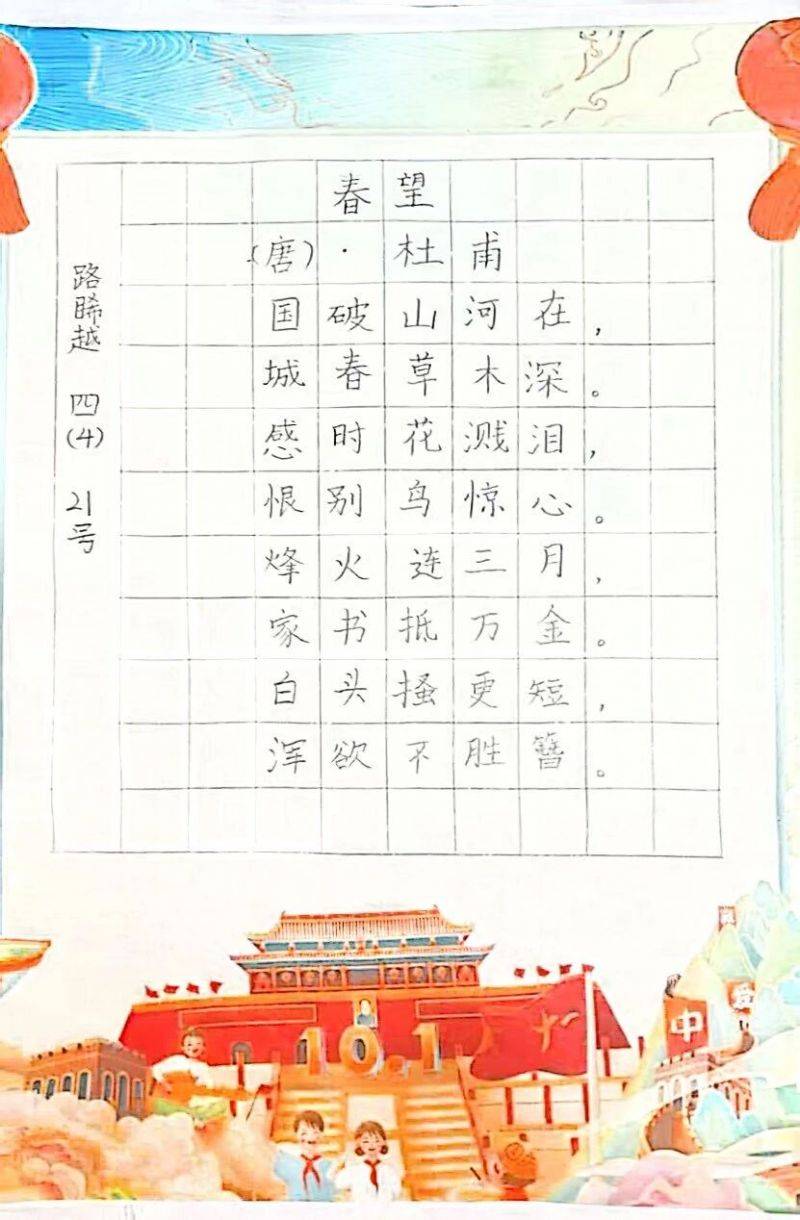 春望
(唐)·杜甫
国破山河在,
城春草木深。
感时花溅泪,
恨别鸟惊心。
烽火连三月,
家书抵万金。
白头搔更短,
浑欲不胜簪。
路晞越 四(4) 21号
10.1
中